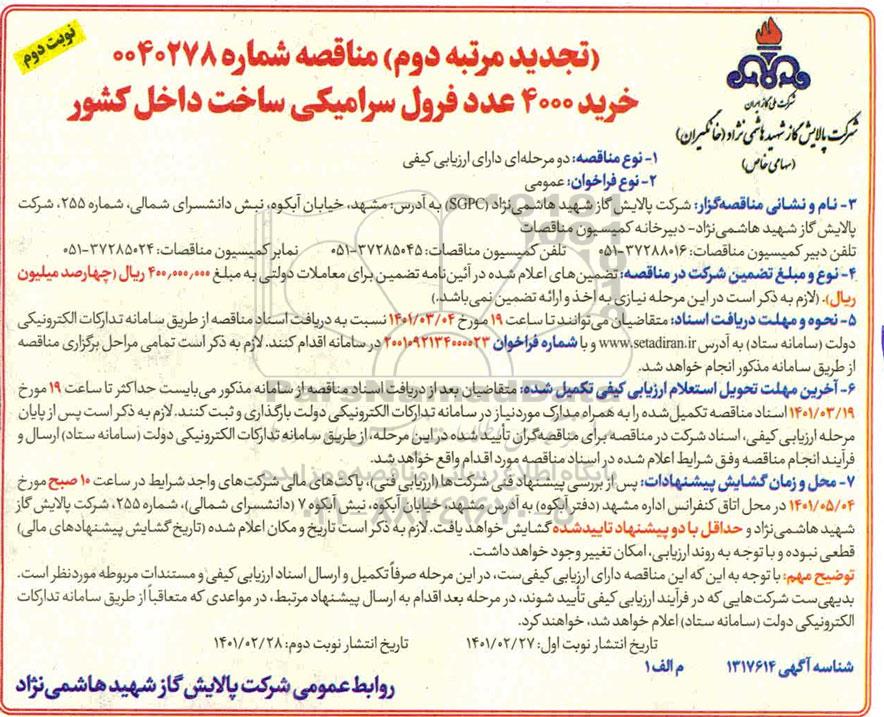 نوبت دوم
(تجدید مرتبه دوم) مناقصه شماره ۰۰۴۰۲۷۸
خرید ۴۰۰۰ عدد فرول سرامیکی ساخت داخل کشور
شرکت ملی گاز ایران
شرکت پالایش گاز شهید هاشمی نژاد (خانگیران)
(سهامی خاص)
۱- نوع مناقصه: دو مرحله‌ای دارای ارزیابی کیفی
۲- نوع فراخوان: عمومی
۳- نام و نشانی مناقصه‌گزار: شرکت پالایش گاز شهید هاشمی‌نژاد (SGPC) به آدرس: مشهد، خیابان آبکوه، نبش دانشسرای شمالی، شماره ۲۵۵، شرکت
پالایش گاز شهید هاشمی‌نژاد- دبیرخانه کمیسیون مناقصات
تلفن دبیر کمیسیون مناقصات: ۳۷۲۸۸۰۱۶-۰۵۱ تلفن کمیسیون مناقصات: ۳۷۲۸۵۰۴۵-۰۵۱ نمابر کمیسیون مناقصات: ۳۷۲۸۵۰۲۴-۰۵۱
۴- نوع و مبلغ تضمین شرکت در مناقصه: تضمین‌های اعلام شده در آئین‌نامه تضمین برای معاملات دولتی به مبلغ ۴۰۰,۰۰۰,۰۰۰ ریال (چهارصد میلیون
ریال). (لازم به ذکر است در این مرحله نیازی به اخذ و ارائه تضمین نمی‌باشد.)
۵- نحوه و مهلت دریافت اسناد: متقاضیان می‌توانند تا ساعت ۱۹ مورخ ۱۴۰۱/۰۳/۰۴ نسبت به دریافت اسناد مناقصه از طریق سامانه تدارکات الکترونیکی
دولت (سامانه ستاد) به آدرس www.setadiran.ir و با شماره فراخوان ۲۰۰۱۰۹۲۱۳۴۰۰۰۰۲۳ در سامانه اقدام کنند. لازم به ذکر است تمامی مراحل برگزاری مناقصه
از طریق سامانه مذکور انجام خواهد شد.
۶- آخرین مهلت تحویل استعلام ارزیابی کیفی تکمیل شده: متقاضیان بعد از دریافت اسناد مناقصه از سامانه مذکور می‌بایست حداکثر تا ساعت ۱۹ مورخ
۱۴۰۱/۰۳/۱۹ اسناد مناقصه تکمیل‌شده را به همراه مدارک موردنیاز در سامانه تدارکات الکترونیکی دولت بارگذاری و ثبت کنند. لازم به ذکر است پس از پایان
مرحله ارزیابی کیفی، اسناد شرکت در مناقصه برای مناقصه‌گران تأیید شده در این مرحله، از طریق سامانه تدارکات الکترونیکی دولت (سامانه ستاد) ارسال و
فرآیند انجام مناقصه وفق شرایط اعلام شده در اسناد مناقصه مورد اقدام واقع خواهد شد.
۷- محل و زمان گشایش پیشنهادات: پس از بررسی پیشنهاد فنی شرکت‌ها (ارزیابی فنی)، پاکت‌های مالی شرکت‌های واجد شرایط در ساعت ۱۰ صبح مورخ
۱۴۰۱/۰۵/۰۴ در محل اتاق کنفرانس اداره مشهد (دفتر آبکوه) به آدرس مشهد، خیابان آبکوه، نبش آبکوه ۷ (دانشسرای شمالی)، شماره ۲۵۵، شرکت پالایش گاز
شهید هاشمی‌نژاد و حداقل با دو پیشنهاد تاییدشده گشایش خواهد یافت. لازم به ذکر است تاریخ و مکان اعلام شده (تاریخ گشایش پیشنهادهای مالی)
قطعی نبوده و با توجه به روند ارزیابی، امکان تغییر وجود خواهد داشت.
توضیح مهم: با توجه به این که این مناقصه دارای ارزیابی کیفی‌ست، در این مرحله صرفاً تکمیل و ارسال اسناد ارزیابی کیفی و مستندات مربوطه موردنظر است.
بدیهی‌ست شرکت‌هایی که در فرآیند ارزیابی کیفی تأیید شوند، در مرحله بعد اقدام به ارسال پیشنهاد مرتبط، در مواعدی که متعاقباً از طریق سامانه تدارکات
الکترونیکی دولت (سامانه ستاد) اعلام خواهد شد، خواهند کرد.
تاریخ انتشار نوبت اول: ۱۴۰۱/۰۲/۲۷ تاریخ انتشار نوبت دوم: ۱۴۰۱/۰۲/۲۸
شناسه آگهی ۱۳۱۷۶۱۴ م الف ۱
روابط عمومی شرکت پالایش گاز شهید هاشمی‌نژاد
ParsNamadData
پایگاه اطلاع رسانی مناقصه و مزایده
۰۲۱-۸۸۳۴۹۶۷۰-۵